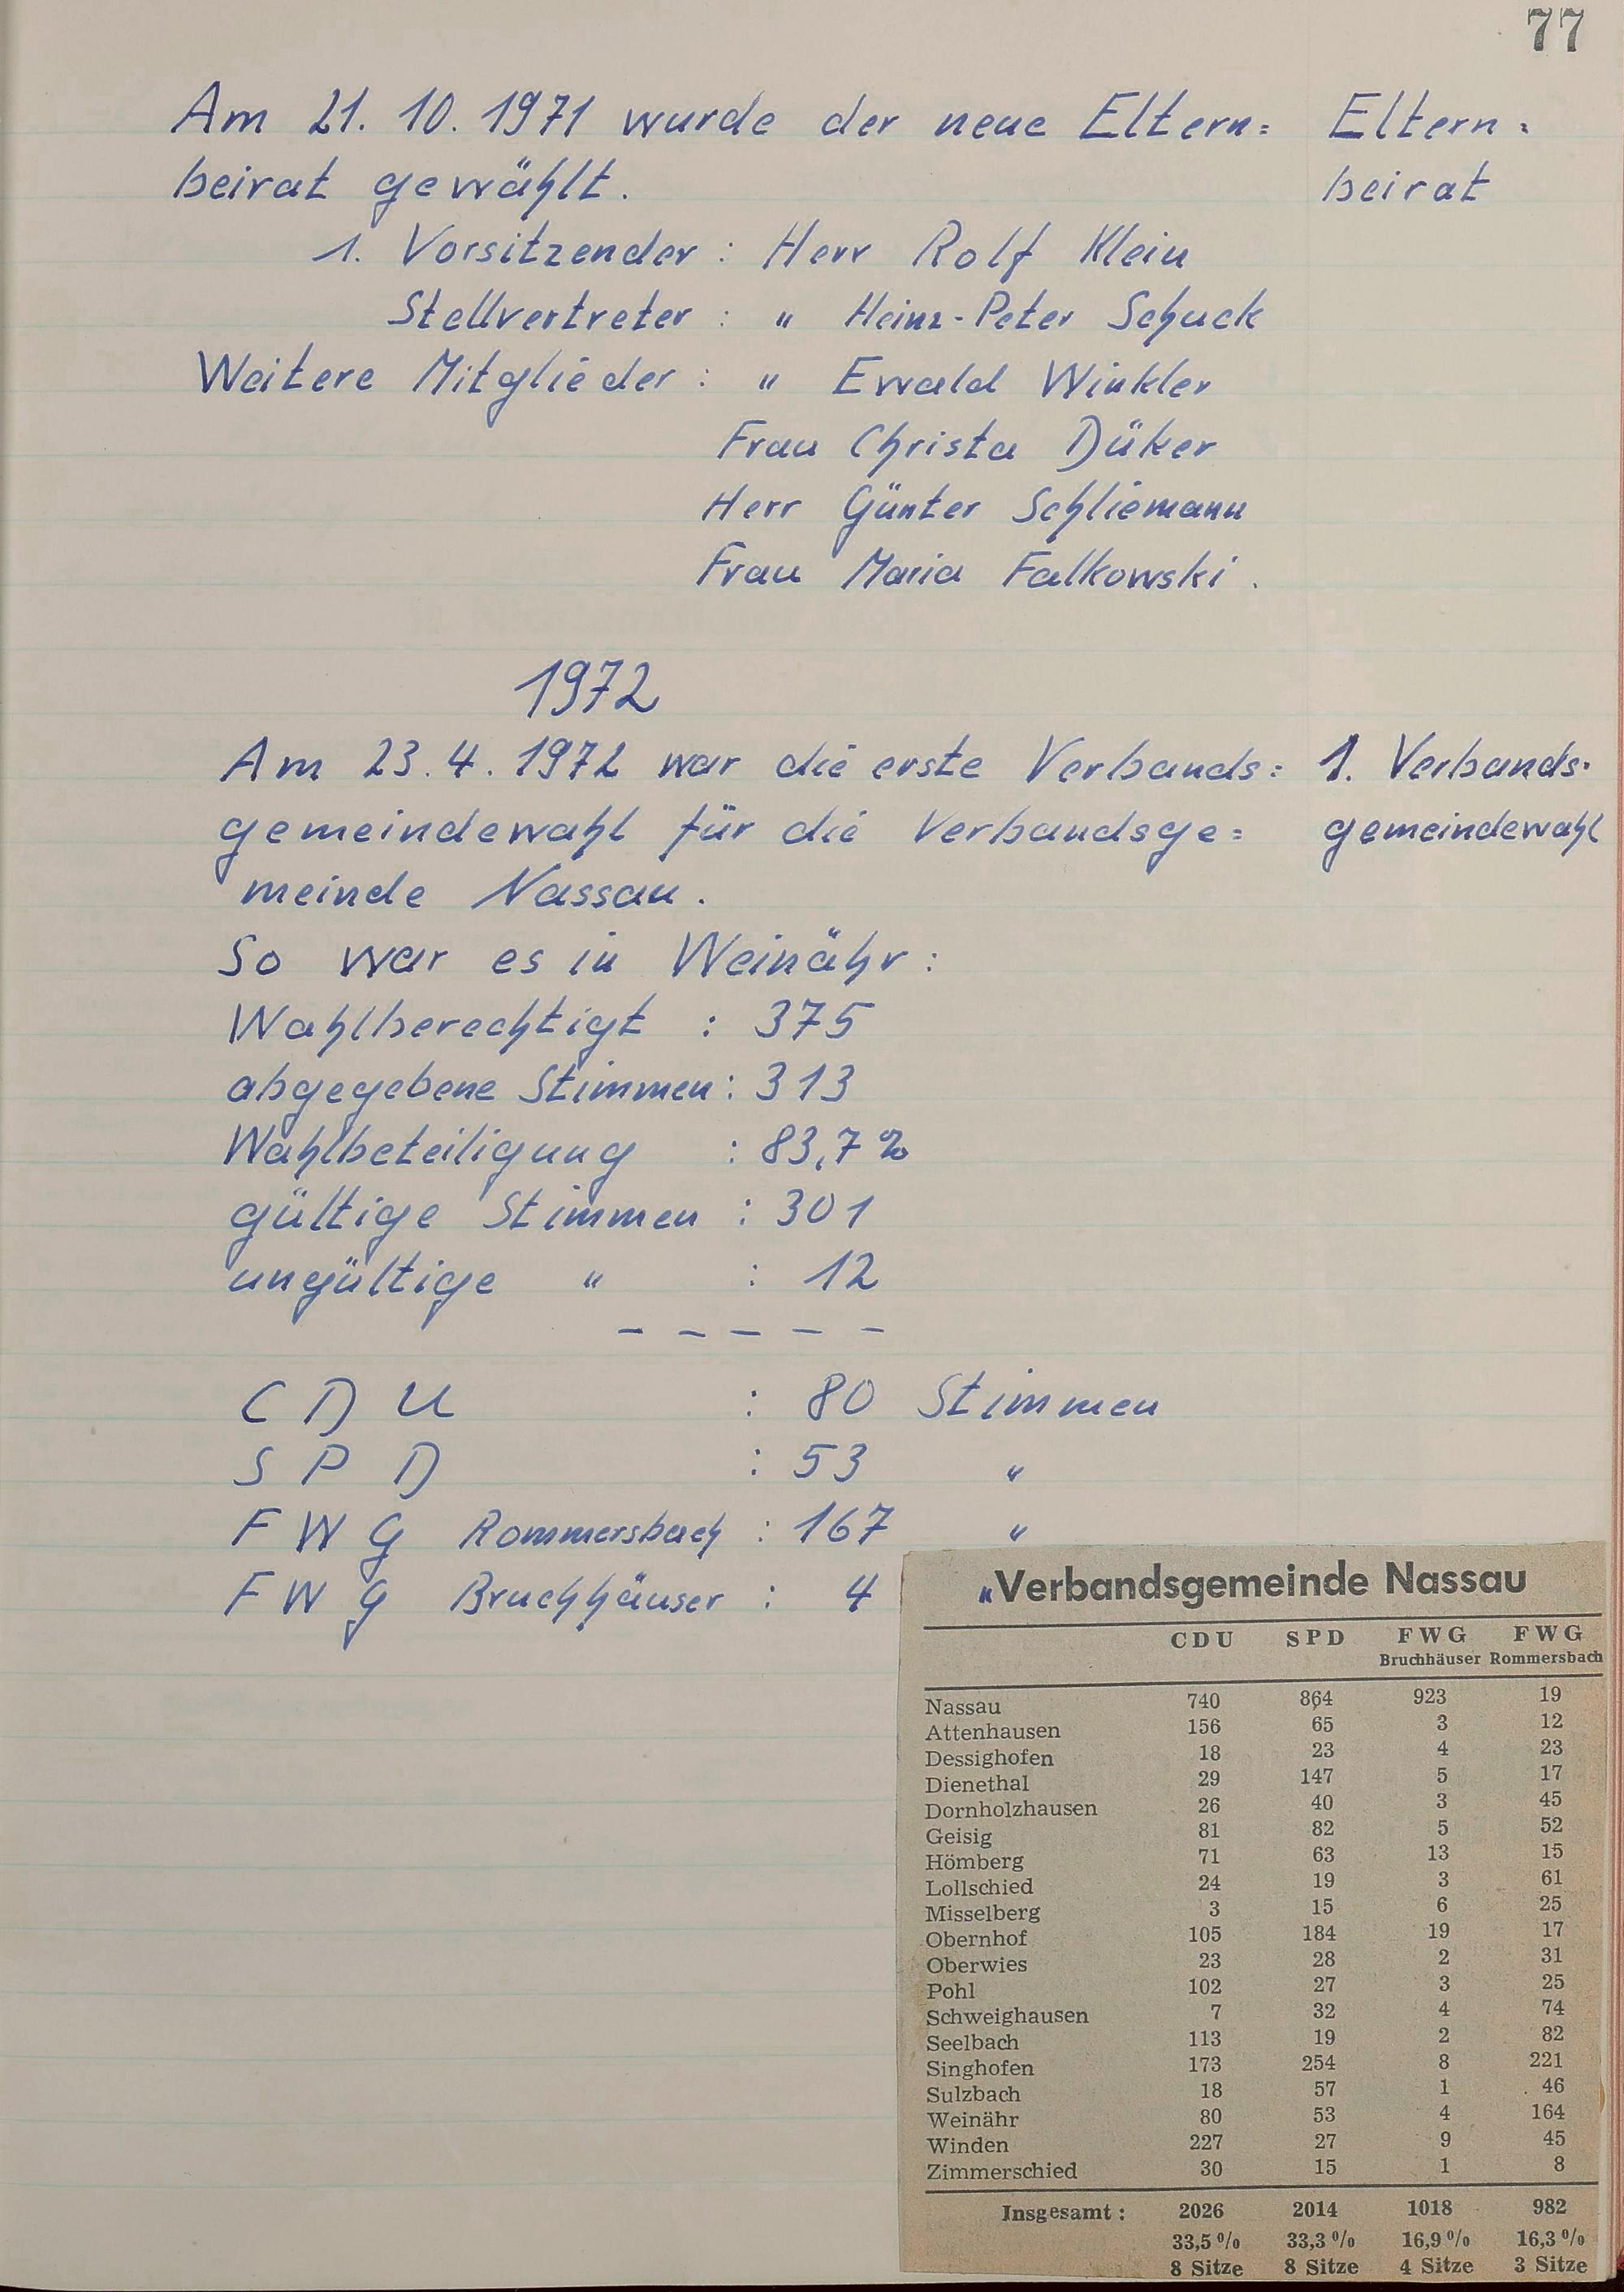 77
Am 21. 10. 1971 wurde der neue Eltern= Eltern=
beirat gewählt. beirat
1. Vorsitzender : Herr Rolf Klein
Stellvertreter : " Heinz-Peter Schuck
Weitere Mitglieder : " Ewald Winkler
Frau Christa Düker
Herr Günter Schliemann
Frau Maria Falkowski.
1972
Am 23. 4. 1972 war die erste Verbands= 1. Verbands=
gemeindewahl für die Verbandsge= gemeindewahl
meinde Nassau.
So war es in Weinähr :
Wahlberechtigt : 375
abgegebene Stimmen : 313
Wahlbeteiligung : 83,7 %
gültige Stimmen : 301
ungültige " : 12
– – – – –
C D U : 80 Stimmen
S P D : 53 "
F W G Rommersbach : 167 "
F W G Bruchhäuser : 4 "
Verbandsgemeinde Nassau
CDU SPD FWG FWG
Bruchhäuser Rommersbach
Nassau 740 864 923 19
Attenhausen 156 65 3 12
Dessighofen 18 23 4 23
Dienethal 29 147 5 17
Dornholzhausen 26 40 3 45
Geisig 81 82 5 52
Hömberg 71 63 13 15
Lollschied 24 19 3 61
Misselberg 3 15 6 25
Obernhof 105 184 19 17
Oberwies 23 28 2 31
Pohl 102 27 3 25
Schweighausen 7 32 4 74
Seelbach 113 19 2 82
Singhofen 173 254 8 221
Sulzbach 18 57 1 46
Weinähr 80 53 4 164
Winden 227 27 9 45
Zimmerschied 30 15 1 8
Insgesamt : 2026 2014 1018 982
33,5 % 33,3 % 16,9 % 16,3 %
8 Sitze 8 Sitze 4 Sitze 3 Sitze